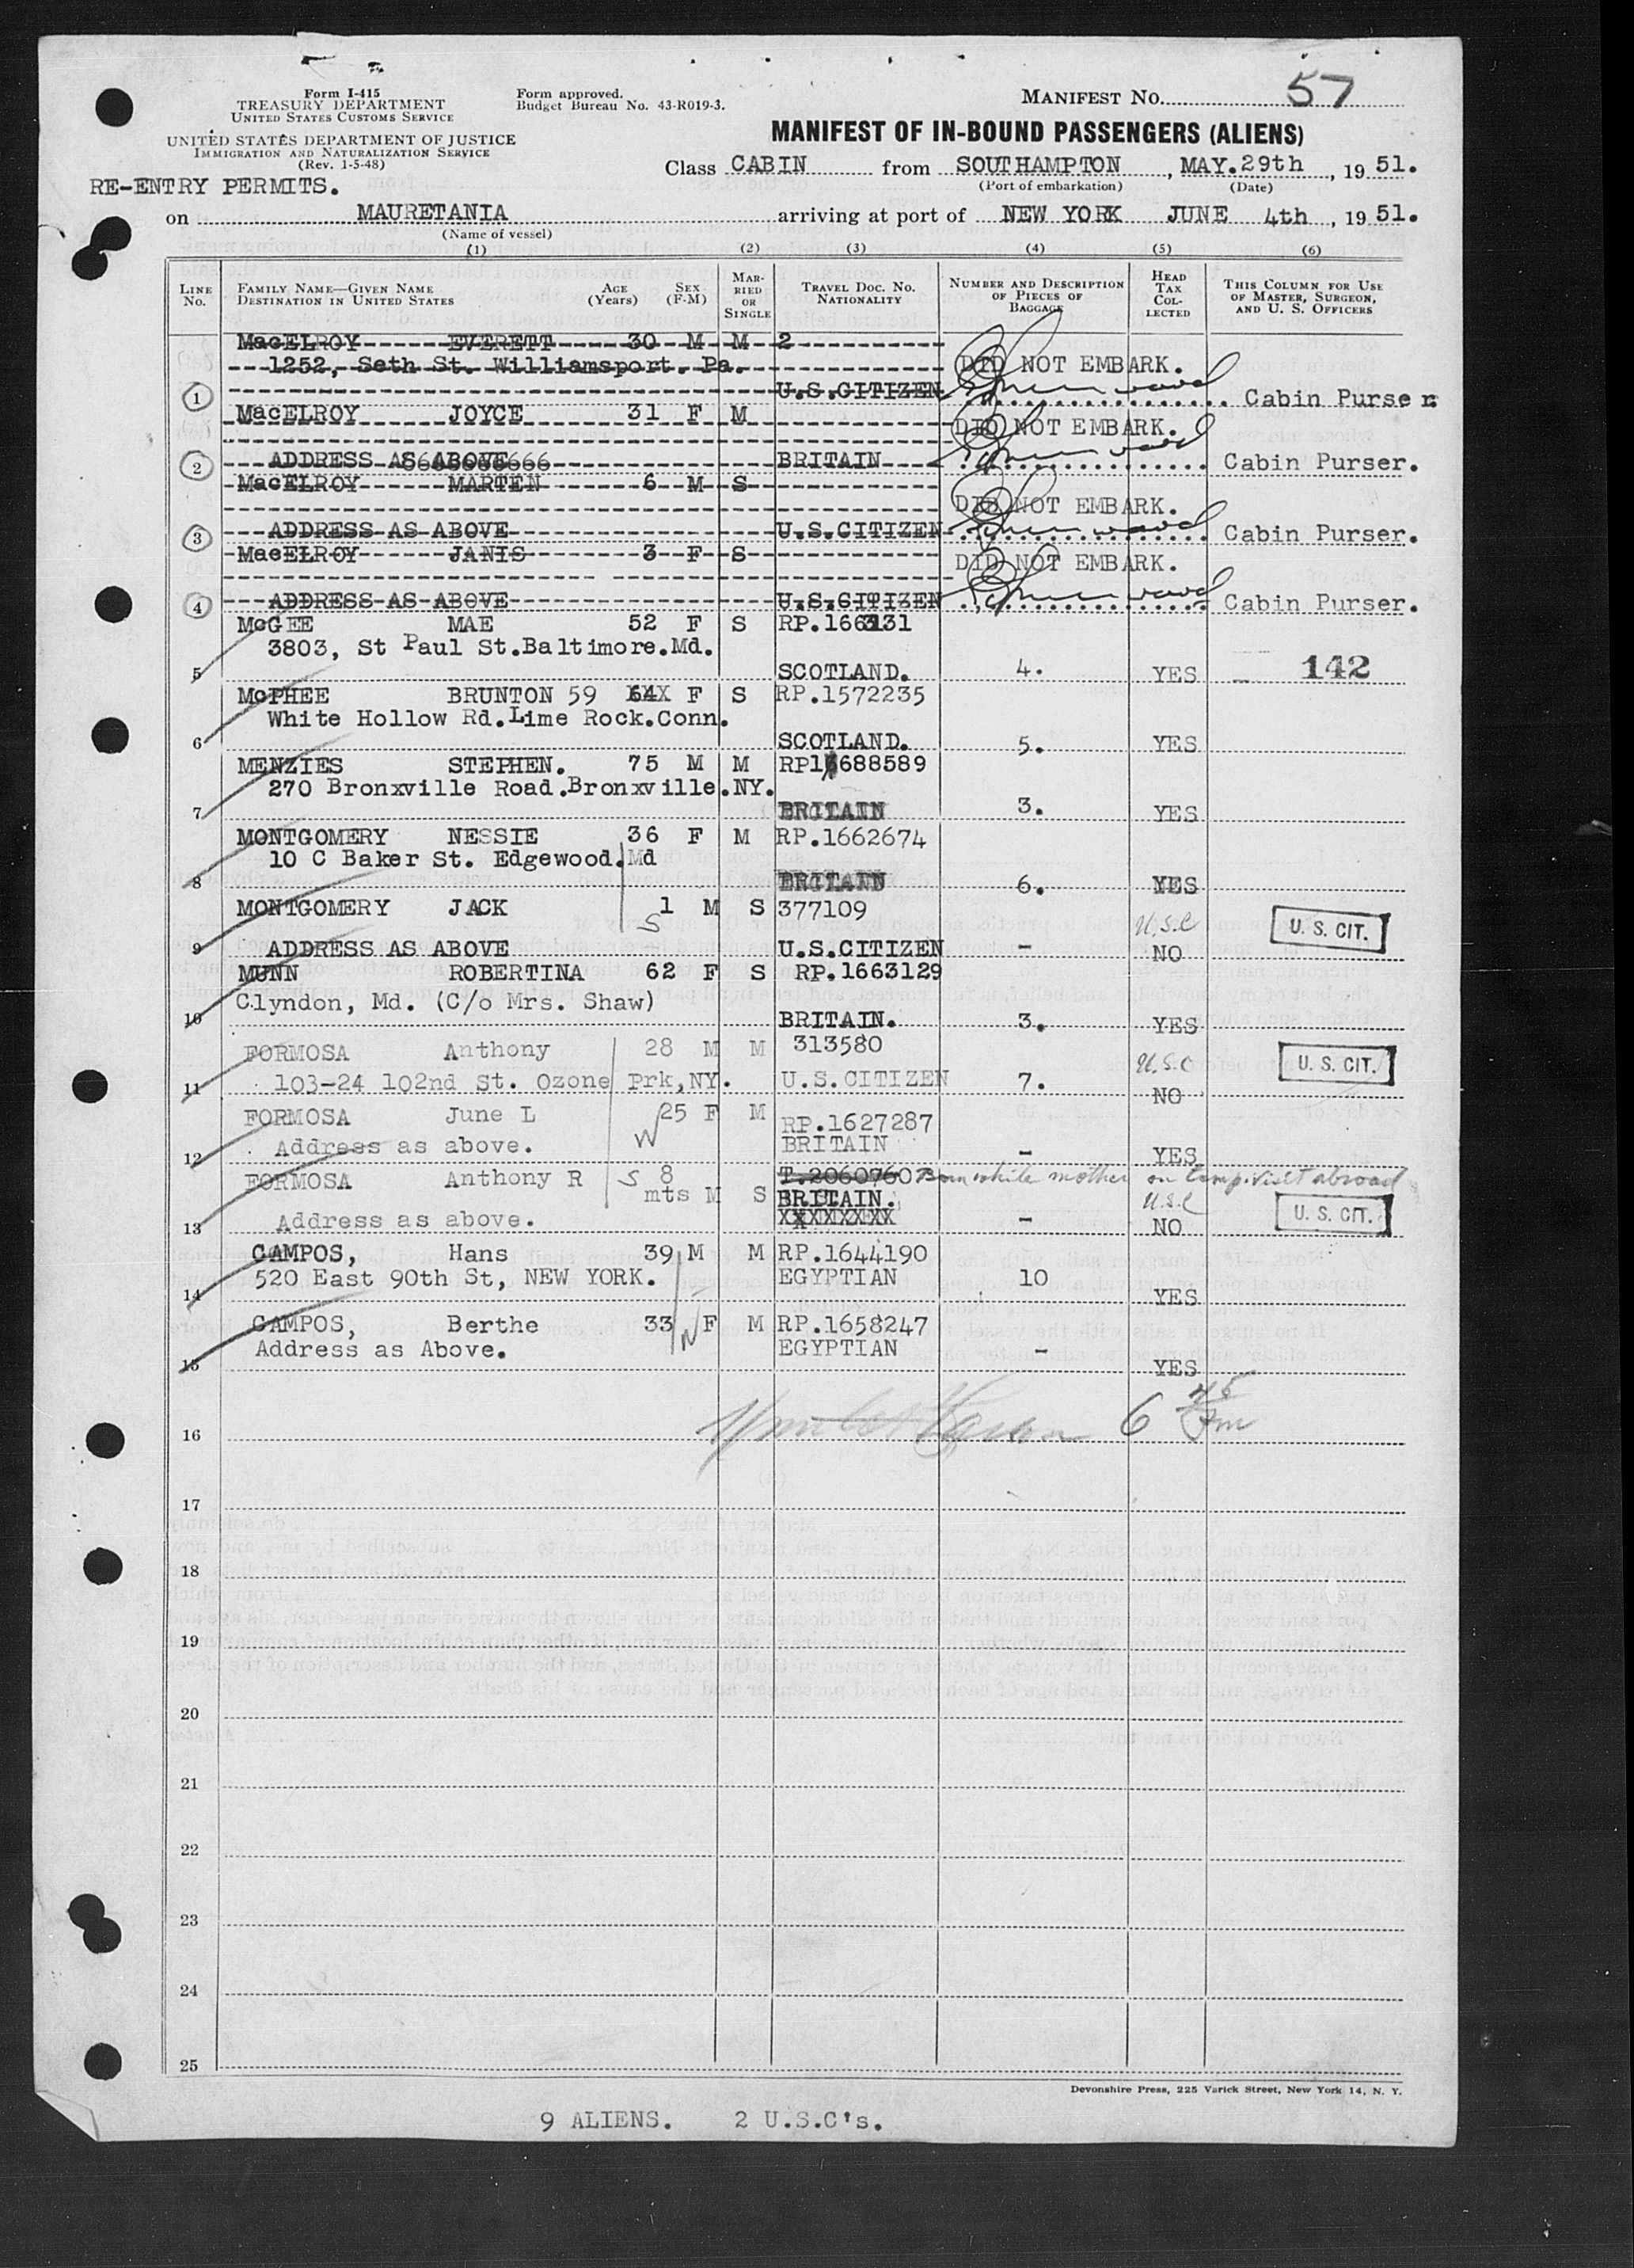 57
Form I-415
TREASURY DEPARTMENT
UNITED STATES CUSTOMS SERVICE
UNITED STATES DEPARTMENT OF JUSTICE
IMMIGRATION AND NATURALIZATION SERVICE
(Rev. 1-5-48)
Form approved.
Budget Bureau No. 43-R019-3.
MANIFEST No.
MANIFEST OF IN-BOUND PASSENGERS (ALIENS)
Class CABIN from SOUTHAMPTON, MAY.29th, 1951.
(Port of embarkation) (Date)
RE-ENTRY PERMITS.
on MAURETANIA arriving at port of NEW YORK JUNE 4th, 1951.
(Name of vessel)
(1) (2) (3) (4) (5) (6)
LINE No. FAMILY NAME—GIVEN NAME DESTINATION IN UNITED STATES AGE (Years) SEX (F-M) MARRIED OR SINGLE TRAVEL DOC. NO. NATIONALITY NUMBER AND DESCRIPTION OF PIECES OF BAGGAGE HEAD TAX COLLECTED THIS COLUMN FOR USE OF MASTER, SURGEON, AND U. S. OFFICERS
MacELROY EVERETT 30 M M 2
1252, Seth St. Williamsport. Pa. DID NOT EMBARK.
1 U.S.CITIZEN Cabin Purser
MacELROY JOYCE 31 F M
DID NOT EMBARK.
2 ADDRESS AS ABOVE BRITAIN Cabin Purser.
MacELROY MARTEN 6 M S
DID NOT EMBARK.
3 ADDRESS AS ABOVE U.S.CITIZEN Cabin Purser.
MacELROY JANIS 3 F S
DID NOT EMBARK.
4 ADDRESS AS ABOVE U.S.CITIZEN Cabin Purser.
McGEE MAE 52 F S RP.1663131
3803, St Paul St.Baltimore.Md.
5 SCOTLAND. 4. YES 142
McPHEE BRUNTON 59 64X F S RP.1572235
White Hollow Rd.Lime Rock.Conn.
6 SCOTLAND. 5. YES
MENZIES STEPHEN. 75 M M RP1688589
270 Bronxville Road.Bronxville.NY.
7 BRITAIN 3. YES
MONTGOMERY NESSIE 36 F M RP.1662674
10 C Baker St. Edgewood.Md
8 BRITAIN 6. YES
MONTGOMERY JACK 1 M S 377109
S U.S.C U. S. CIT.
9 ADDRESS AS ABOVE U.S.CITIZEN - NO
MUNN ROBERTINA 62 F S RP.1663129
Clyndon, Md. (C/o Mrs. Shaw)
10 BRITAIN. 3. YES
FORMOSA Anthony 28 M M 313580
U.S.C U. S. CIT.
11 103-24 102nd St. Ozone Prk,NY. U.S.CITIZEN 7. NO
FORMOSA June L 25 F M RP.1627287
W
12 Address as above. BRITAIN - YES
FORMOSA Anthony R S 8 mts M S T.2060760 Born while mother on temp. visit abroad
BRITAIN. U.S.C
XXXXXXXX U. S. CIT.
13 Address as above. - NO
CAMPOS, Hans 39 M M RP.1644190
520 East 90th St, NEW YORK. EGYPTIAN 10
14 YES
CAMPOS, Berthe 33 F M RP.1658247
W
Address as Above. EGYPTIAN -
15 YES
16
17
18
19
20
21
22
23
24
25
Devonshire Press, 225 Varick Street, New York 14, N. Y.
9 ALIENS. 2 U.S.C's.